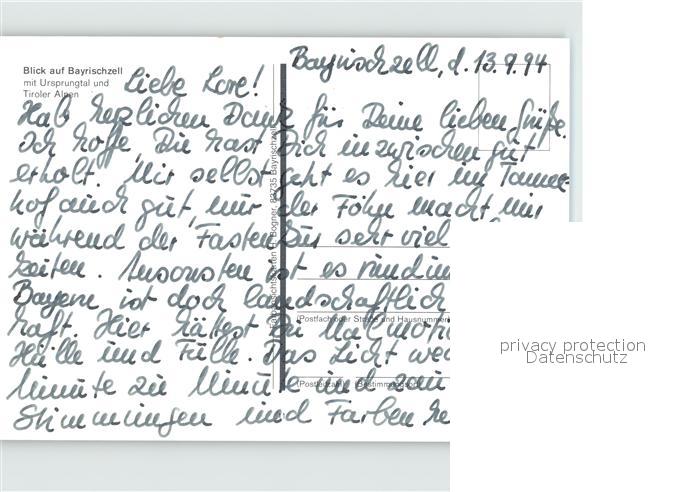 Blick auf Bayrischzell
mit Ursprungtal und
Tiroler Alpen
Bayrischzell, d. 13.9.94
Liebe Lore!
Hab herzlichen Dank für Deine lieben Grüße.
Ich hoffe, Du hast Dich inzwischen gut
erholt. Mir selbst geht es hier im Tannen-
hof auch gut, nur der Föhn macht mir
während der Fastenkur sehr viel
. Ansonsten ist es
Bayern ist doch landschaftlich
haft. Hier hättest Du Malmotive
Hülle und Fülle. Das Licht
Minute zu Minute und
Stimmungen und Farben
Bogner, 83735 Bayrischzell
(Postfach oder Straße und Hausnummer)
(Postleitzahl) (Bestimmungsort)
privacy protection
Datenschutz